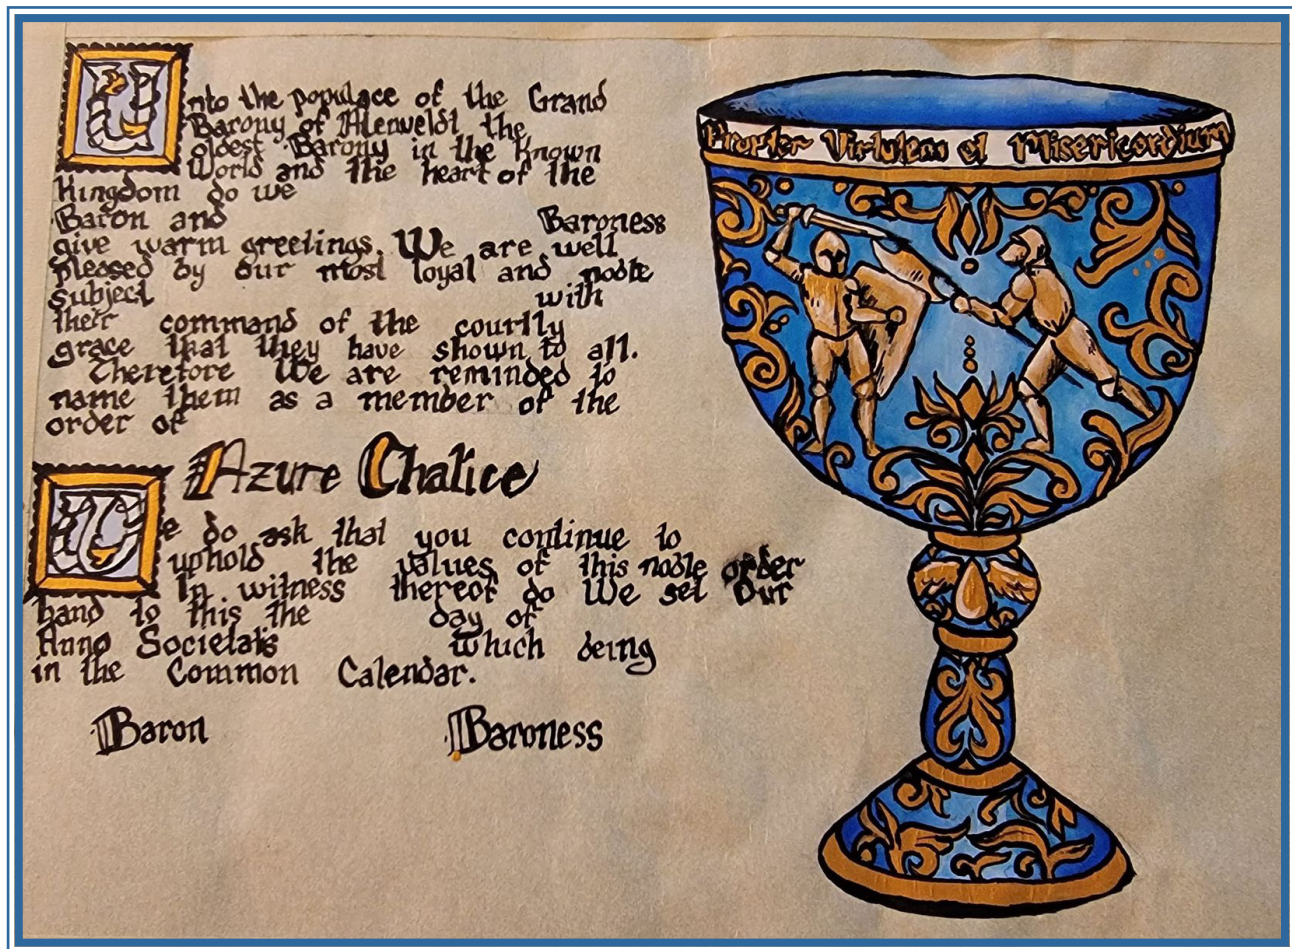 Unto the populace of the Grand
Barony of Atenveldt the
oldest Barony in the Known
World and the heart of the
Kingdom do we
Baron and Baroness
give warm greetings. We are well
pleased by our most loyal and noble
subject with
their command of the courtly
grace that they have shown to all.
Therefore We are reminded to
name them as a member of the
order of
Azure Chalice
We do ask that you continue to
uphold the values of this noble order
In witness thereof do We set Our
hand to this the day of
Anno Societatis which being
in the Common Calendar.
Baron Baroness
Propter Virtutem et Misericordium